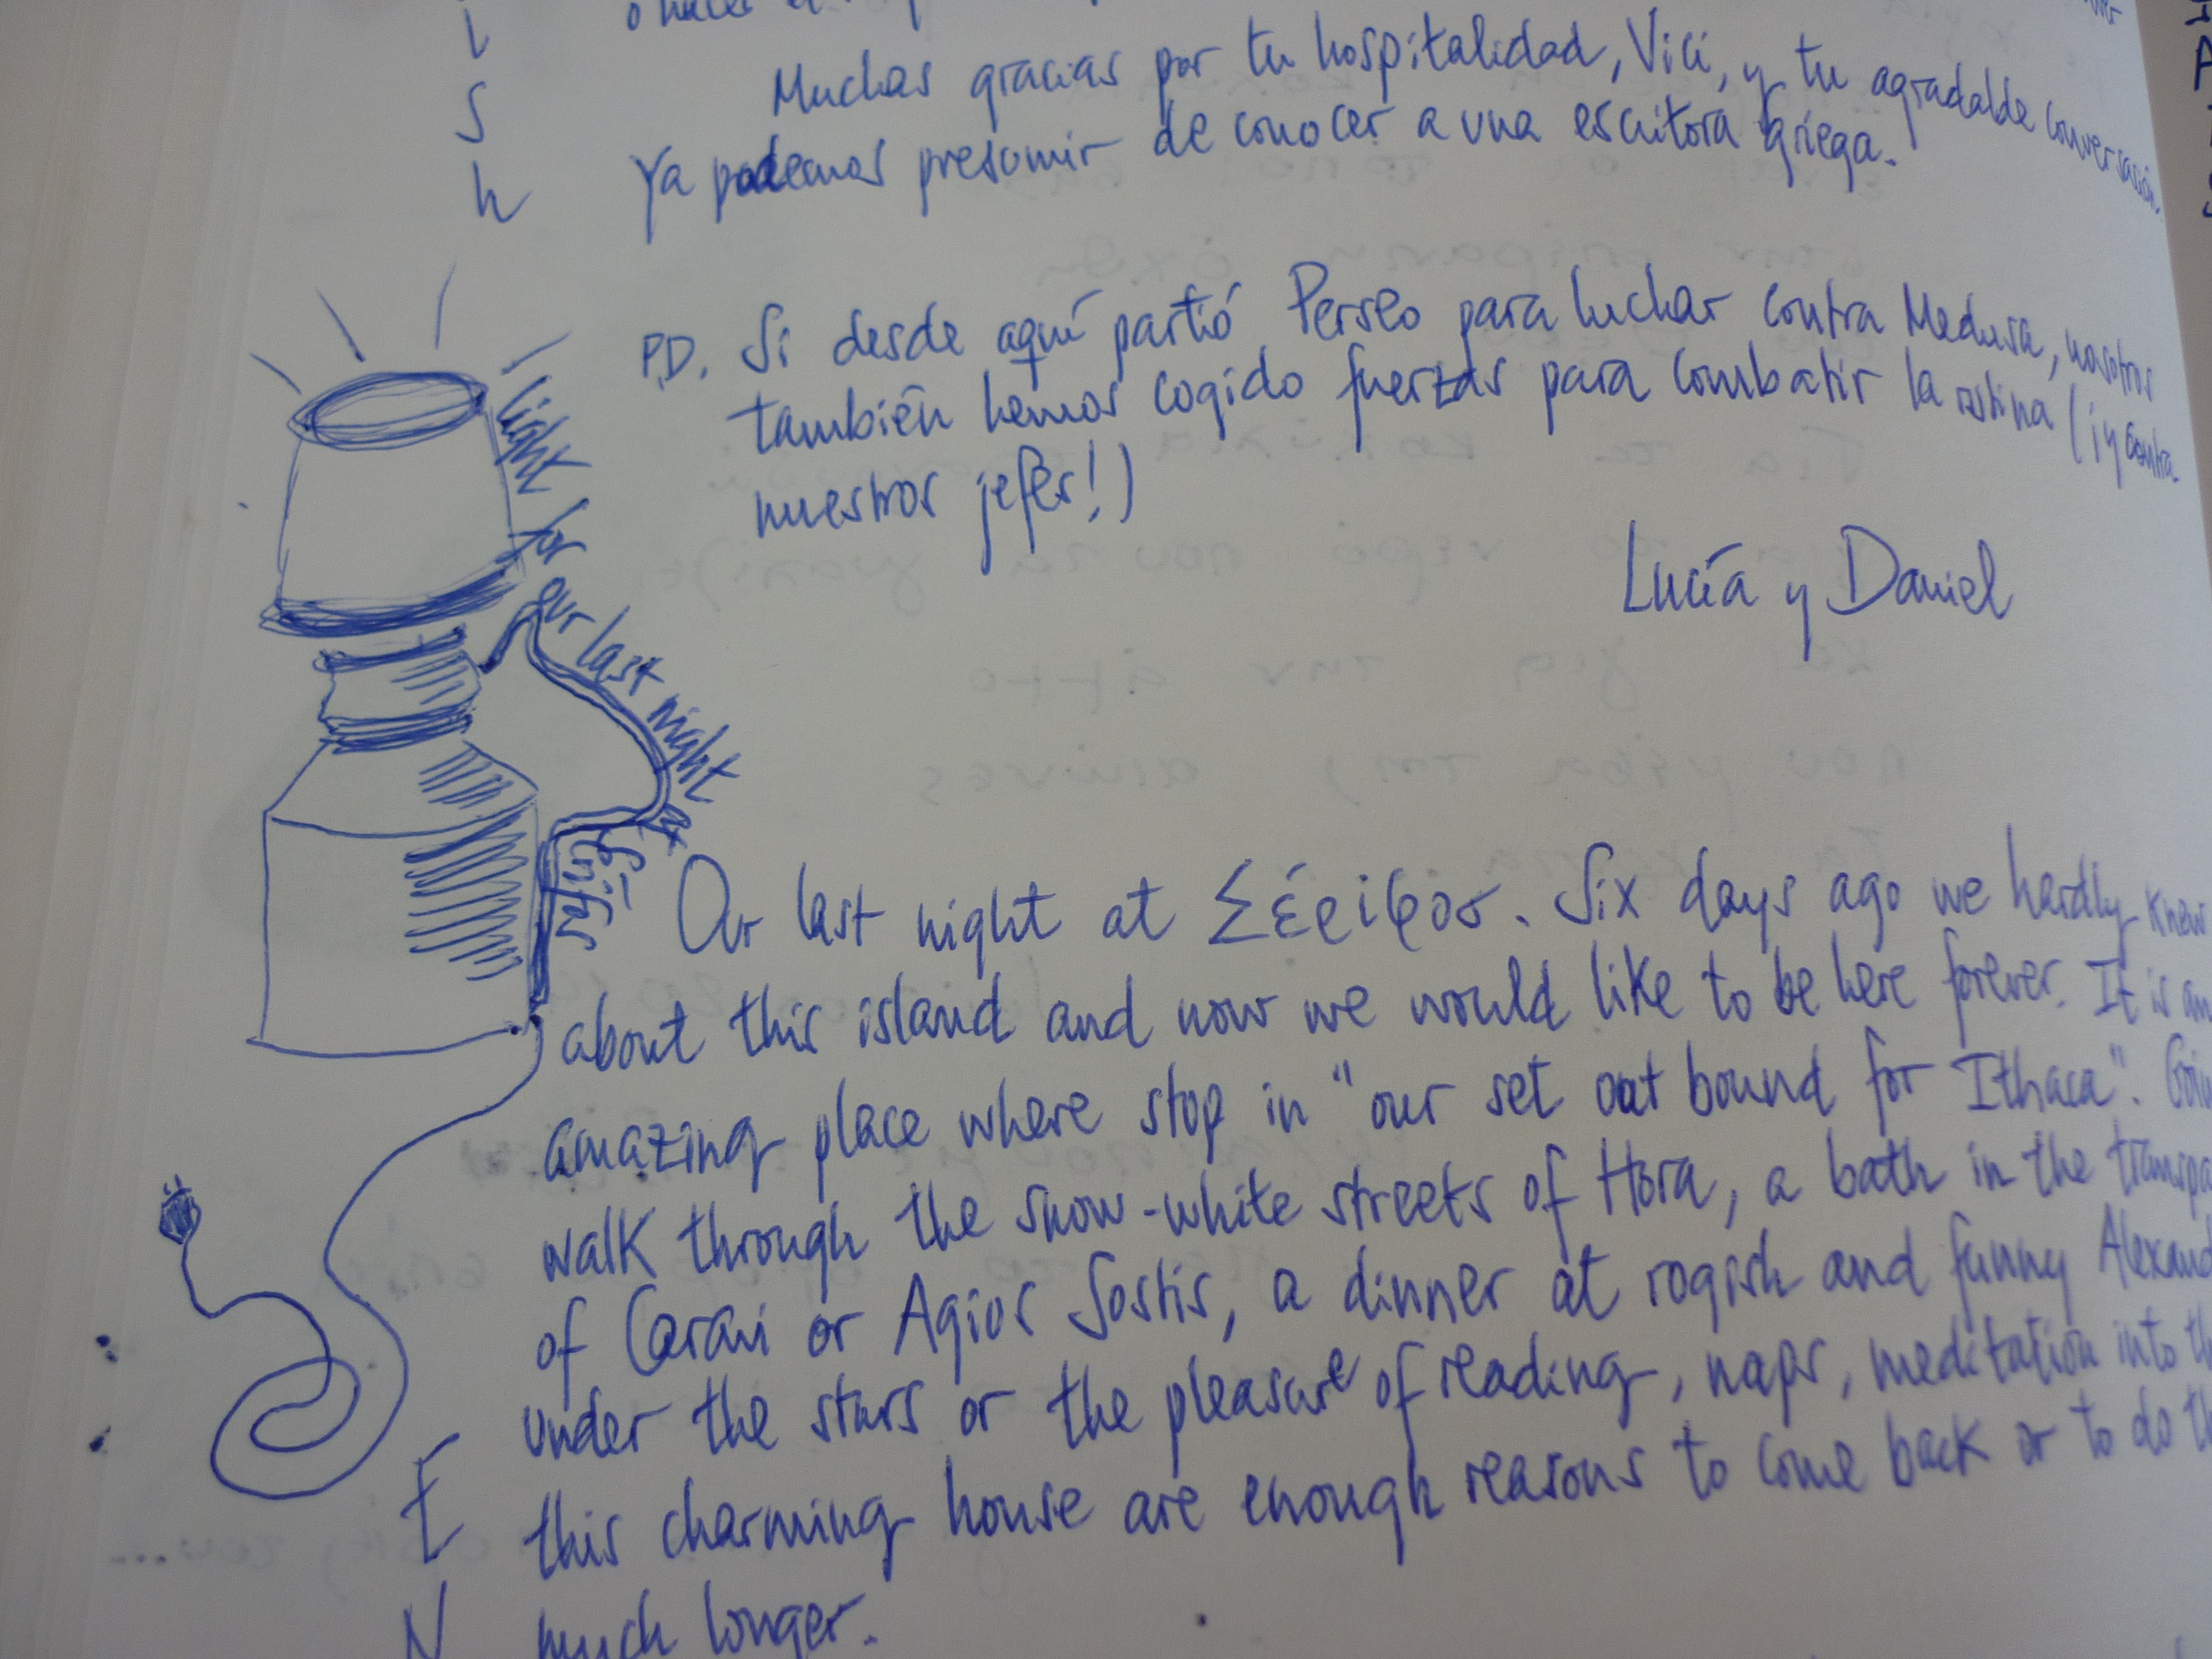 i
s
h
Muchas gracias por tu hospitalidad, Vici, y tu agradable conversación.
Ya podemos presumir de conocer a una escritora griega.
P.D. Si desde aquí partió Perseo para luchar contra Medusa, nosotros
también hemos cogido fuerzas para combatir la rutina (¡y contra
nuestros jefes!)
Lucía y Daniel
light for our last night
Our last night at Σέριφοσ. Six days ago we hardly knew
about this island and now we would like to be here forever. It is an
amazing place where stop in "our set out bound for Ithaca".
walk through the snow-white streets of Hora, a bath in the
of Caravi or Agios Sostis, a dinner at rogish and funny
under the stars or the pleasure of reading, naps, meditation into
this charming house are enough reasons to come back or to do
much longer.
E
N